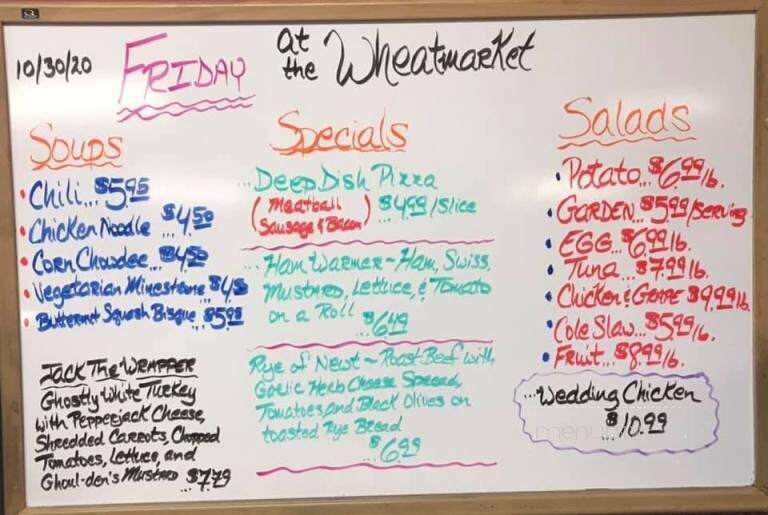 10/30/20
FRIDAY
at
the Wheatmarket
Soups
• Chili... $5.95
• Chicken Noodle ... $4.50
• Corn Chowdee ... $4.50
• Vegetarian Minestrone $4.50
• Butternut Squash Bisque $5.95
JACK THE WRAPPER
Ghostly White Turkey
with Pepperjack Cheese,
Shredded Carrots, Chopped
Tomatoes, Lettuce, and
Ghoul-den's Mustard
... $7.79
Specials
... Deep Dish Pizza
(Meatball
Sausage & Bacon) ... $4.99/Slice
... Ham Warmer ~ Ham, Swiss,
Mustard, Lettuce, & Tomato
on a Roll
... $6.49
Rye of Newt ~ Roast Beef with
Garlic Herb Cheese Spread,
Tomatoes and Black Olives on
toasted Rye Bread
... $6.99
Salads
• Potato... $6.99 lb.
• GARDEN... $5.99/Serving
• EGG... $6.99 lb.
• Tuna... $7.99 lb.
• Chicken & GRAPE $9.99 lb.
• Cole Slaw... $5.99 lb.
• Fruit... $8.99 lb.
... Wedding Chicken
... $10.99